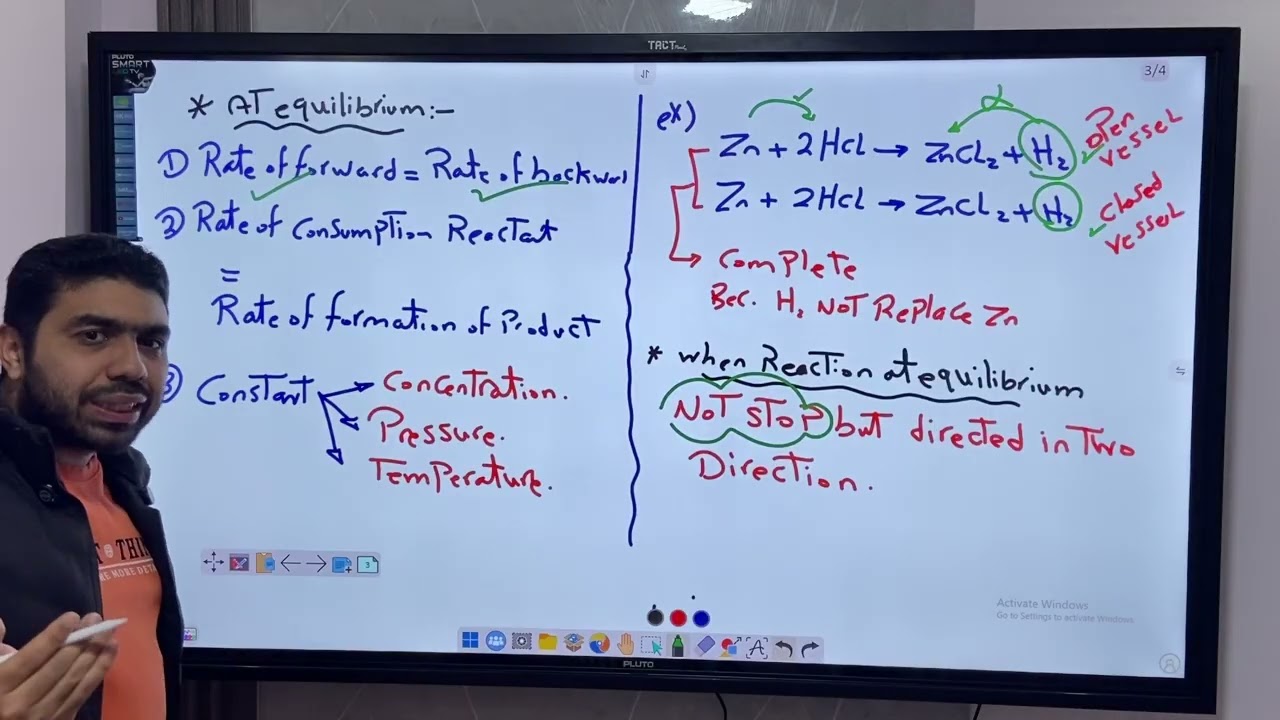 TACT
PLUTO
SMART
TV
3/4
* AT equilibrium:-
① Rate of forward = Rate of backwar
② Rate of Consumption Reactant
=
Rate of formation of Product
③ Constant
Concentration.
Pressure.
Temperature.
ex)
Zn + 2HCl → ZnCL2 + H2
Open vessel
Zn + 2HCl → ZnCL2 + H2
Closed vessel
Complete
Bec. H2 NOT Replace Zn
* when Reaction at equilibrium
NOT STOP but directed in Two
Direction.
THI
MORE DETA
3
Activate Windows
Go to Settings to activate Windows.
PLUTO